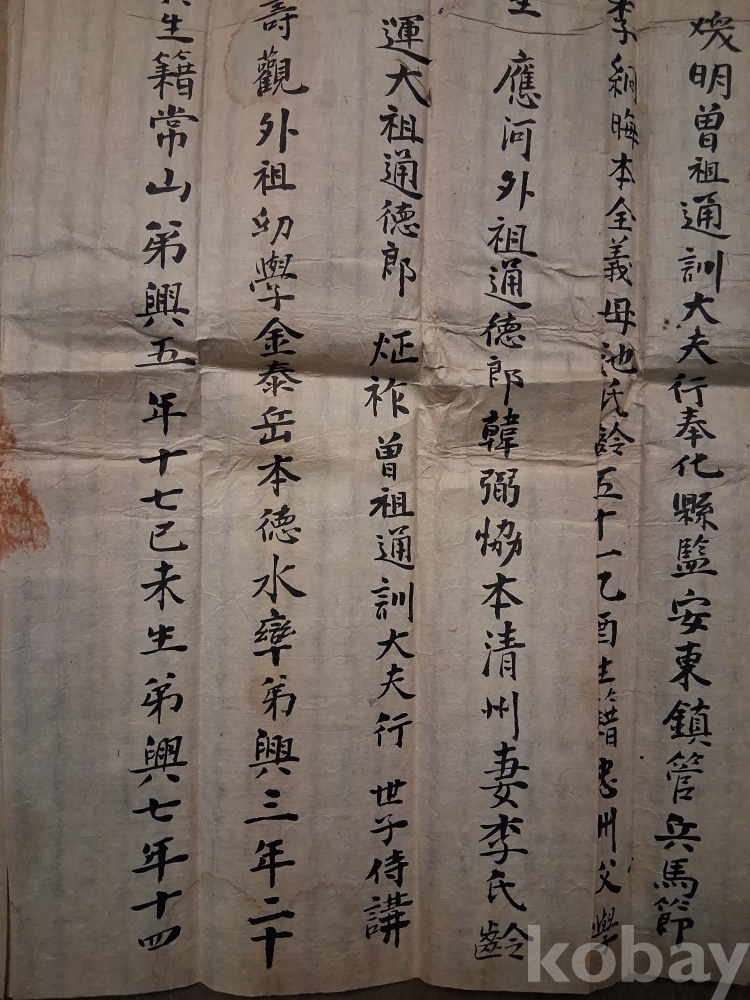 煥明曾祖通訓大夫行奉化縣監安東鎮管兵馬節
李絅晦本全義母池氏齡五十一乙酉生籍忠州父學
生 應河外祖通德郎韓弼協本清州妻李氏齡
運大祖通德郎 炡祚曾祖通訓大夫行 世子侍講
壽觀外祖幼學金泰岳本德水率弟興三年二十
生籍常山弟興五年十七己未生弟興七年十四
kobay